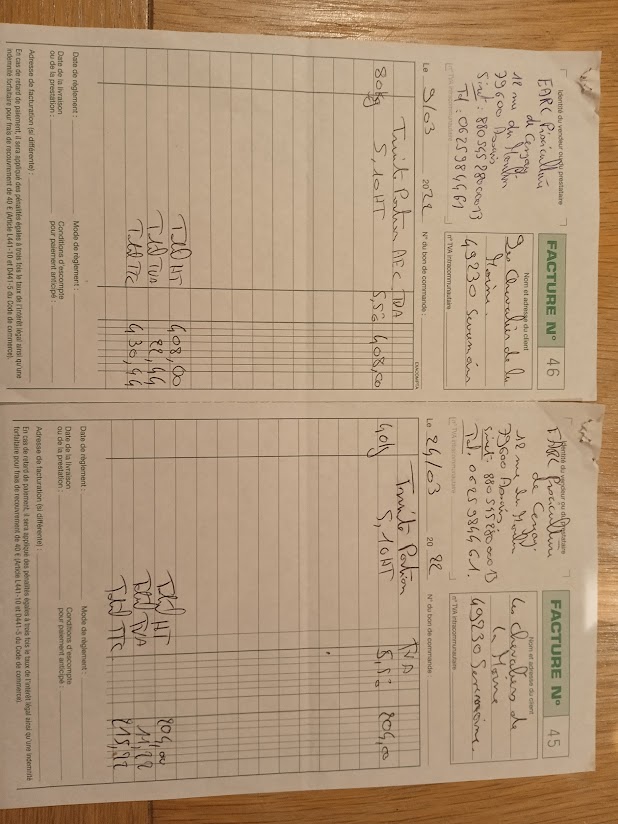 Identité du vendeur ou du prestataire
EARC Pisciculture
de Cerzay
12 rue du Moulin
79600 Assais
Siret : 88054528000013
Tel : 0625984461
n° TVA intracommunautaire
FACTURE N° 46
Nom et adresse du client
Les Chevalier de la
Moine
49230
n° TVA intracommunautaire
Le 9/03 2022
N° du bon de commande :
EXACOMPTA
Truite Portion AEC TVA
80kg 5,10HT 5,5% 408,00
Total HT 408,00
Total TVA 22,44
Total TTC 430,44
Date de règlement :
Mode de règlement :
Date de la livraison
ou de la prestation :
Conditions d'escompte
pour paiement anticipé :
Adresse de facturation (si différente) :
En cas de retard de paiement, il sera appliqué des pénalités égales à trois fois le taux de l'intérêt légal ainsi qu'une
indemnité forfaitaire pour frais de recouvrement de 40 € (Article L441-10 et D441-5 du Code de commerce).
Identité du vendeur ou du prestataire
EARC Pisciculture
de Cerzay
12 rue du Moulin
79600 Assais
Siret : 88054528000013
Tel : 0625984461.
n° TVA intracommunautaire
FACTURE N° 45
Nom et adresse du client
Les Chevaliers de
la Moine
49230
n° TVA intracommunautaire
Le 24/03 2022
N° du bon de commande :
Truite Portion TVA
40kg 5,10HT 5,5% 204,00
Total HT 204,00
Total TVA 11,22
Total TTC 215,22
Date de règlement :
Mode de règlement :
Date de la livraison
ou de la prestation :
Conditions d'escompte
pour paiement anticipé :
Adresse de facturation (si différente) :
En cas de retard de paiement, il sera appliqué des pénalités égales à trois fois le taux de l'intérêt légal ainsi qu'une indemnité
forfaitaire pour frais de recouvrement de 40 € (Article L441-10 et D441-5 du Code de commerce).